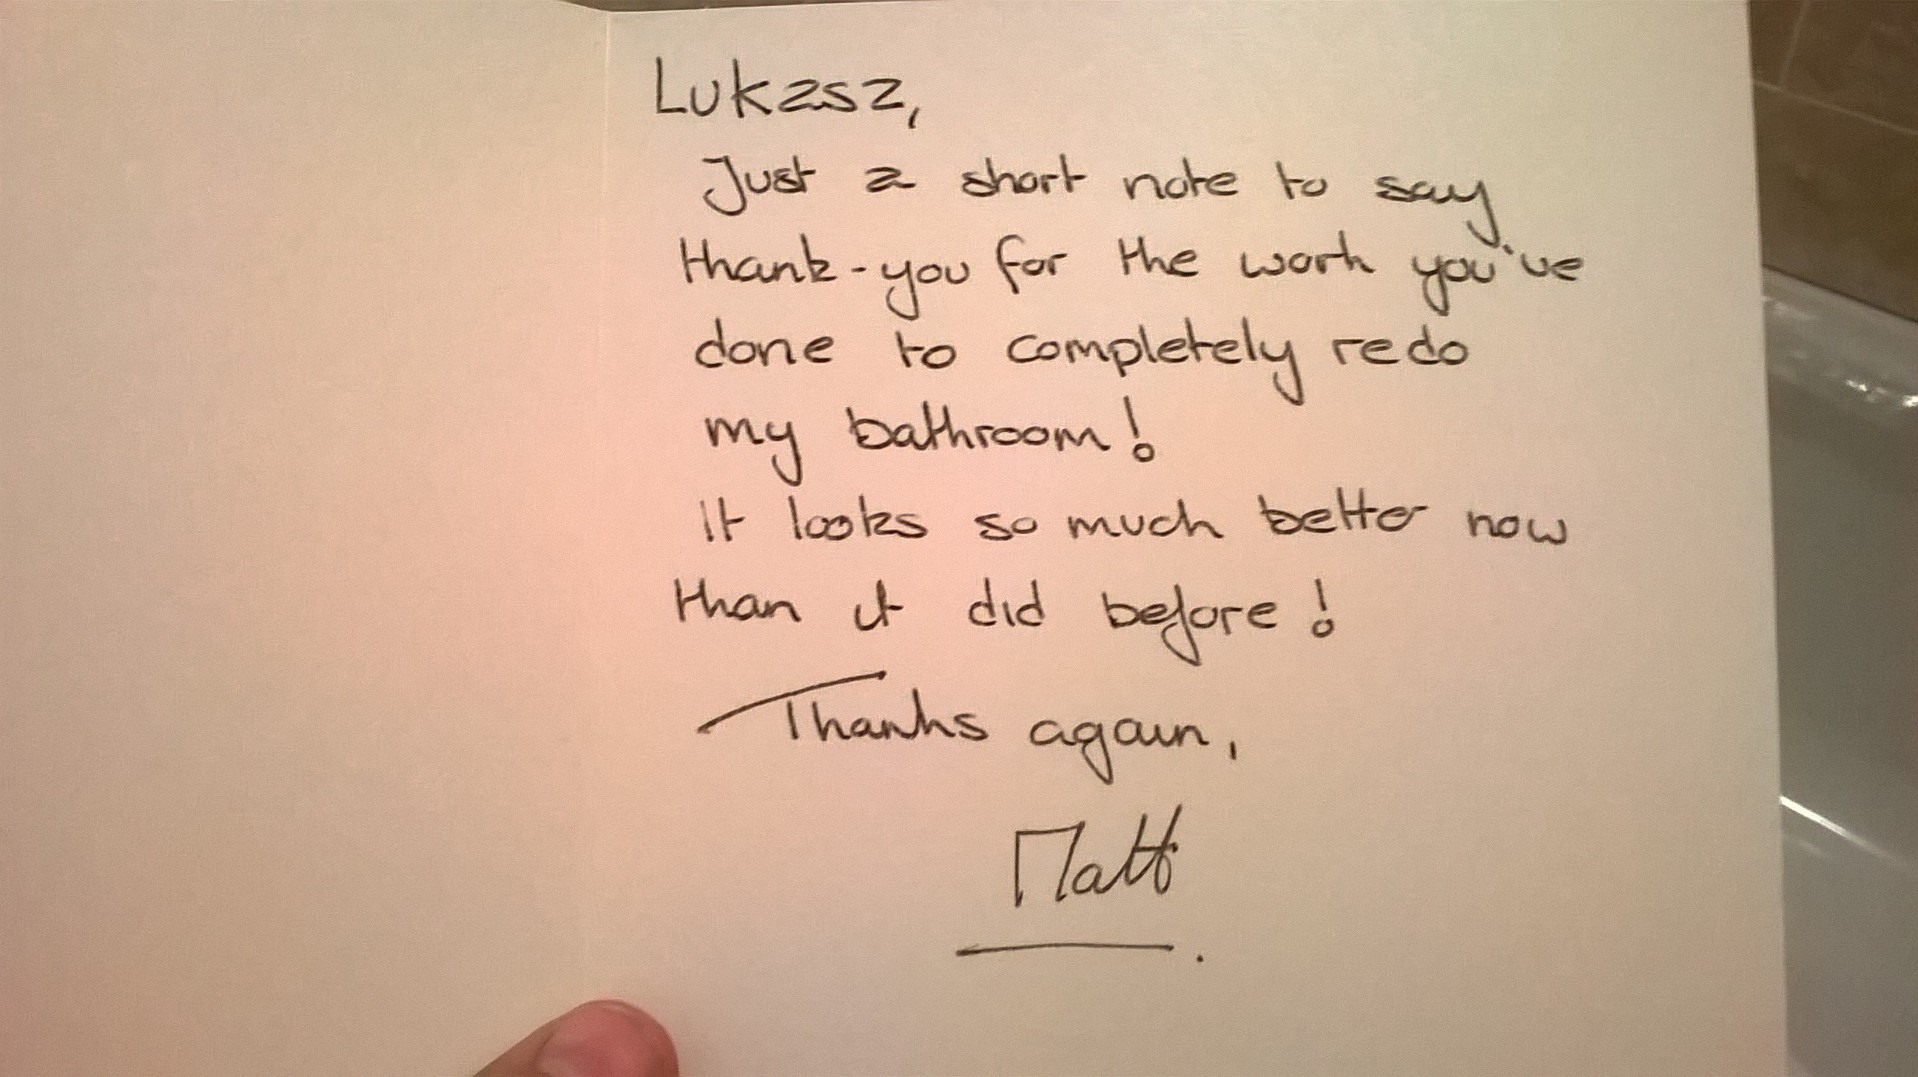 Lukasz,
Just a short note to say
thank-you for the work you've
done to completely redo
my bathroom!
it looks so much better now
than it did before!
Thanks again,
Matt